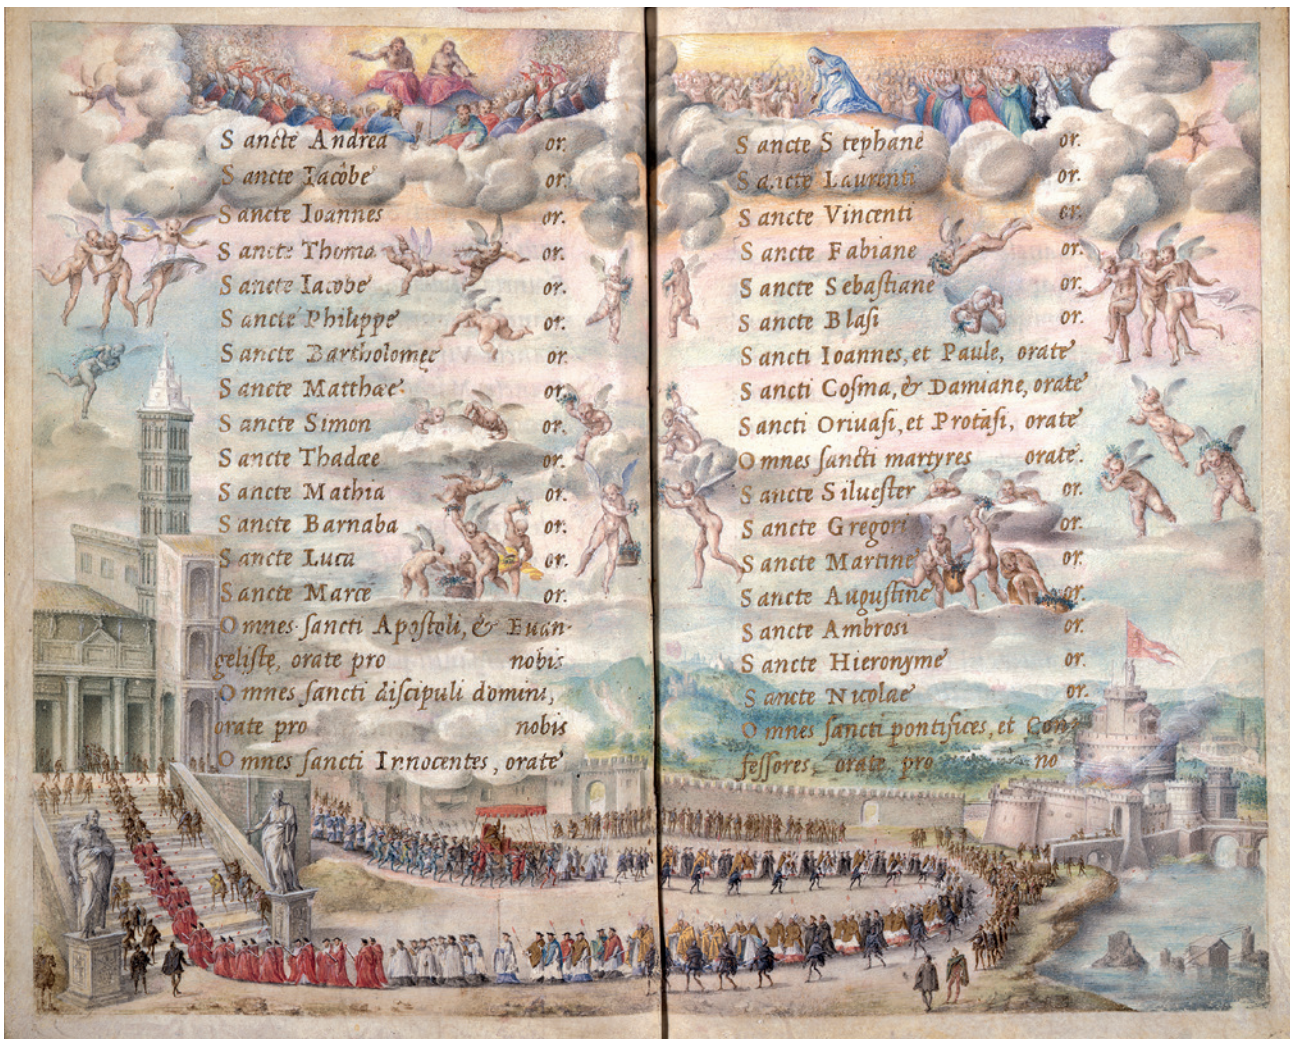 Sancte Andrea or.
Sancte Iacôbe or.
Sancte Ioannes or.
Sancte Thoma or.
Sancte Iacobe or.
Sancte Philippe or.
Sancte Bartholomęe or.
Sancte Matthæe or.
Sancte Simon or.
Sancte Thadæe or.
Sancte Mathia or.
Sancte Barnaba or.
Sancte Luca or.
Sancte Marce or.
Omnes ſancti Apoſtoli, & Euan-
geliſtę, orate pro nobis
Omnes ſancti diſcipuli domini,
orate pro nobis
Omnes ſancti Innocentes, orate
Sancte Stephane or.
Sancte Laurenti or.
Sancte Vincenti or.
Sancte Fabiane or.
Sancte Sebaſtiane or.
Sancte Blaſi or.
Sancti Ioannes, et Paule, orate
Sancti Coſma, & Damiane, orate
Sancti Oriuaſi, et Protaſi, orate
Omnes ſancti martyres orate.
Sancte Silueſter or.
Sancte Gregori or.
Sancte Martine or.
Sancte Auguſtine or.
Sancte Ambroſi or.
Sancte Hieronyme or.
Sancte Nicolae or.
Omnes ſancti pontifices, et Con-
feſſores, orate pro no